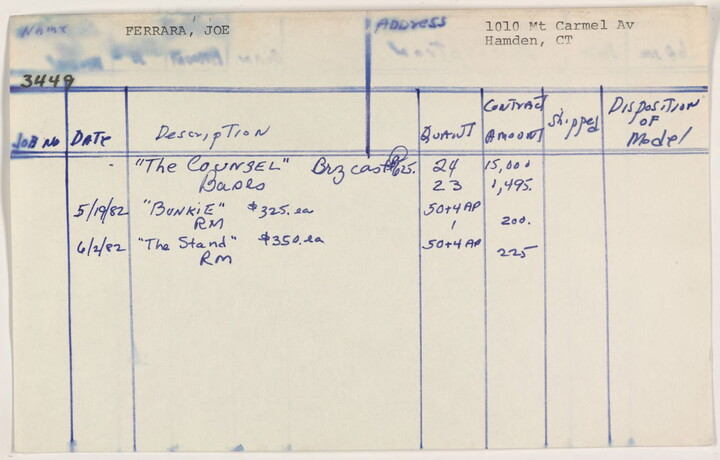 NAME FERRARA, JOE ADDRESS 1010 Mt Carmel Av
Hamden, CT
3449
JOB NO DATE Description QUANT CONTRACT AMOUNT Shipped DISPOSITION OF Model
"The COUNSEL" Brz cast @ 625. 24 15,000
Bases 23 1,495.
5/19/82 "BUNKIE" $325. ea 50+4 AP
RM 1 200.
6/2/82 "The Stand" $350. ea 50+4 AP
RM 225